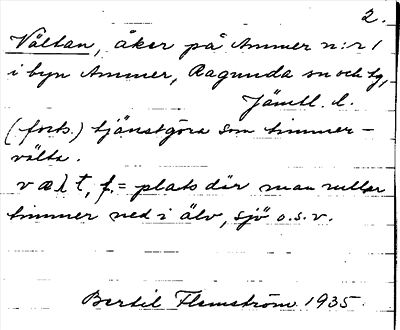 2.
Vältan, åker på Ammer n:r 1
i byn Ammer, Ragunda sn och tg,
Jämtl. l.
(forts.) tjänstgöra som timmer-
välta.
vælt, f. = plats där man rullar
timmer ned i älv, sjö o.s.v.
Bertil Flemström 1935.